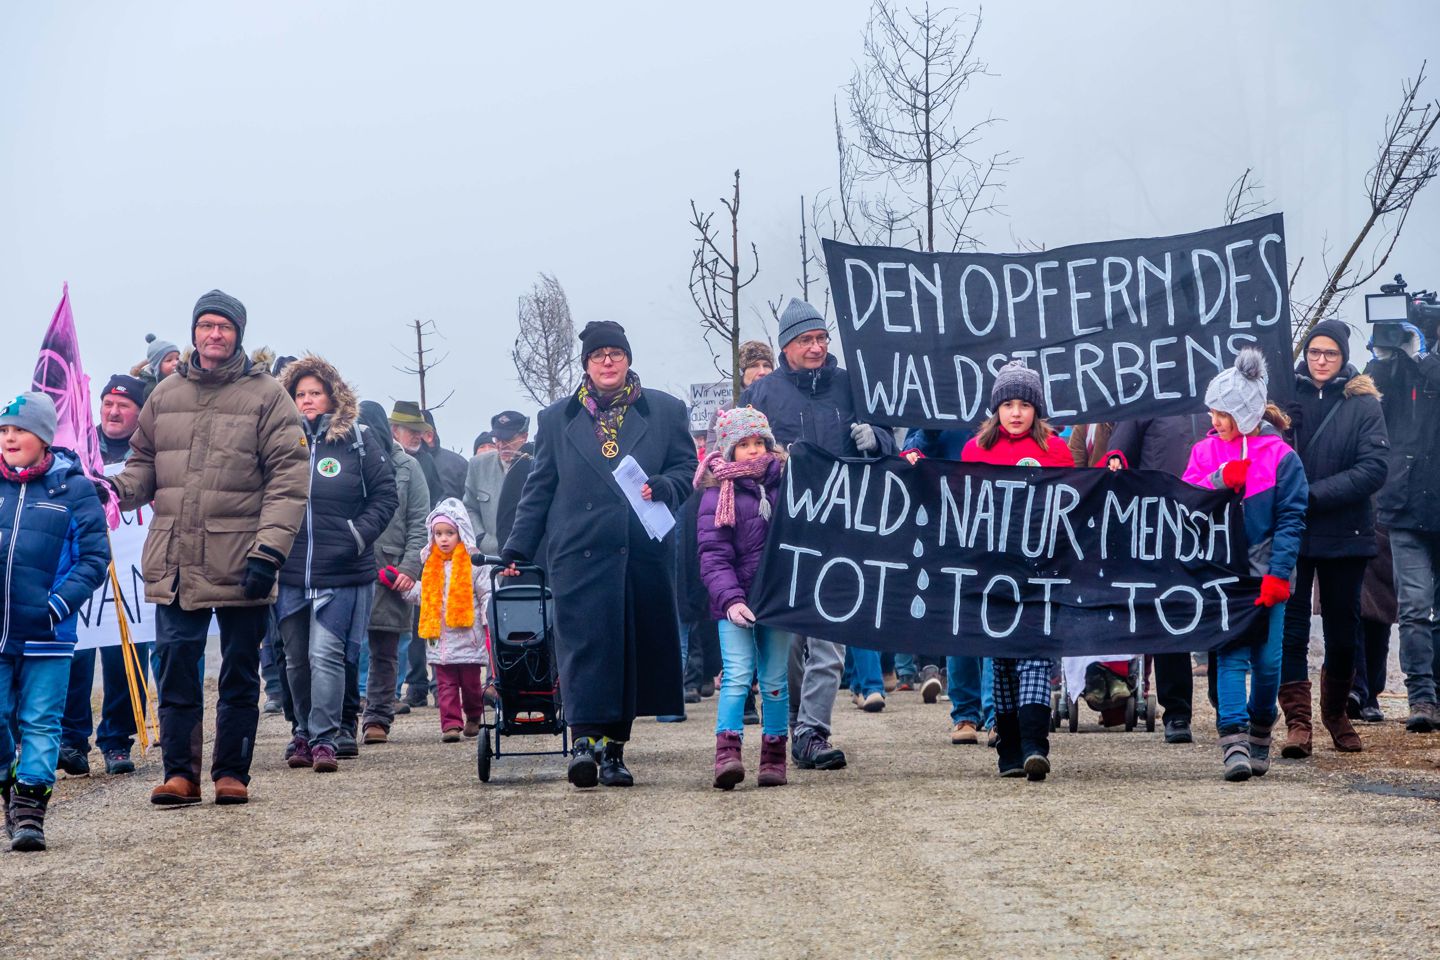 DEN OPFERN DES
WALDSTERBENS
WALD NATUR MENSCH
TOT TOT TOT
Wir